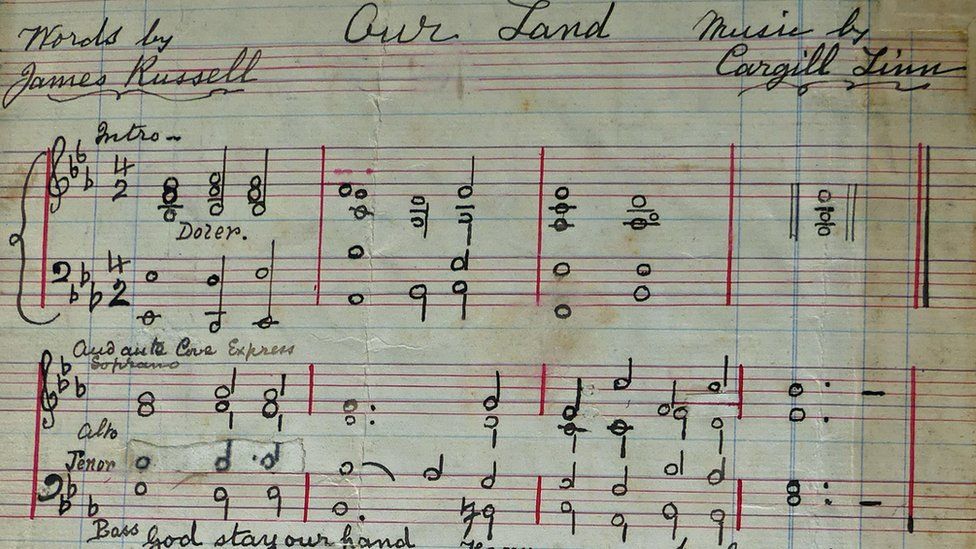 Our Land
Words by
James Russell
Music by
Cargill Linn
Intro
4
2
Doler.
4
2
Andante Con Express
Soprano
Alto
Tenor
Bass God stay our hand